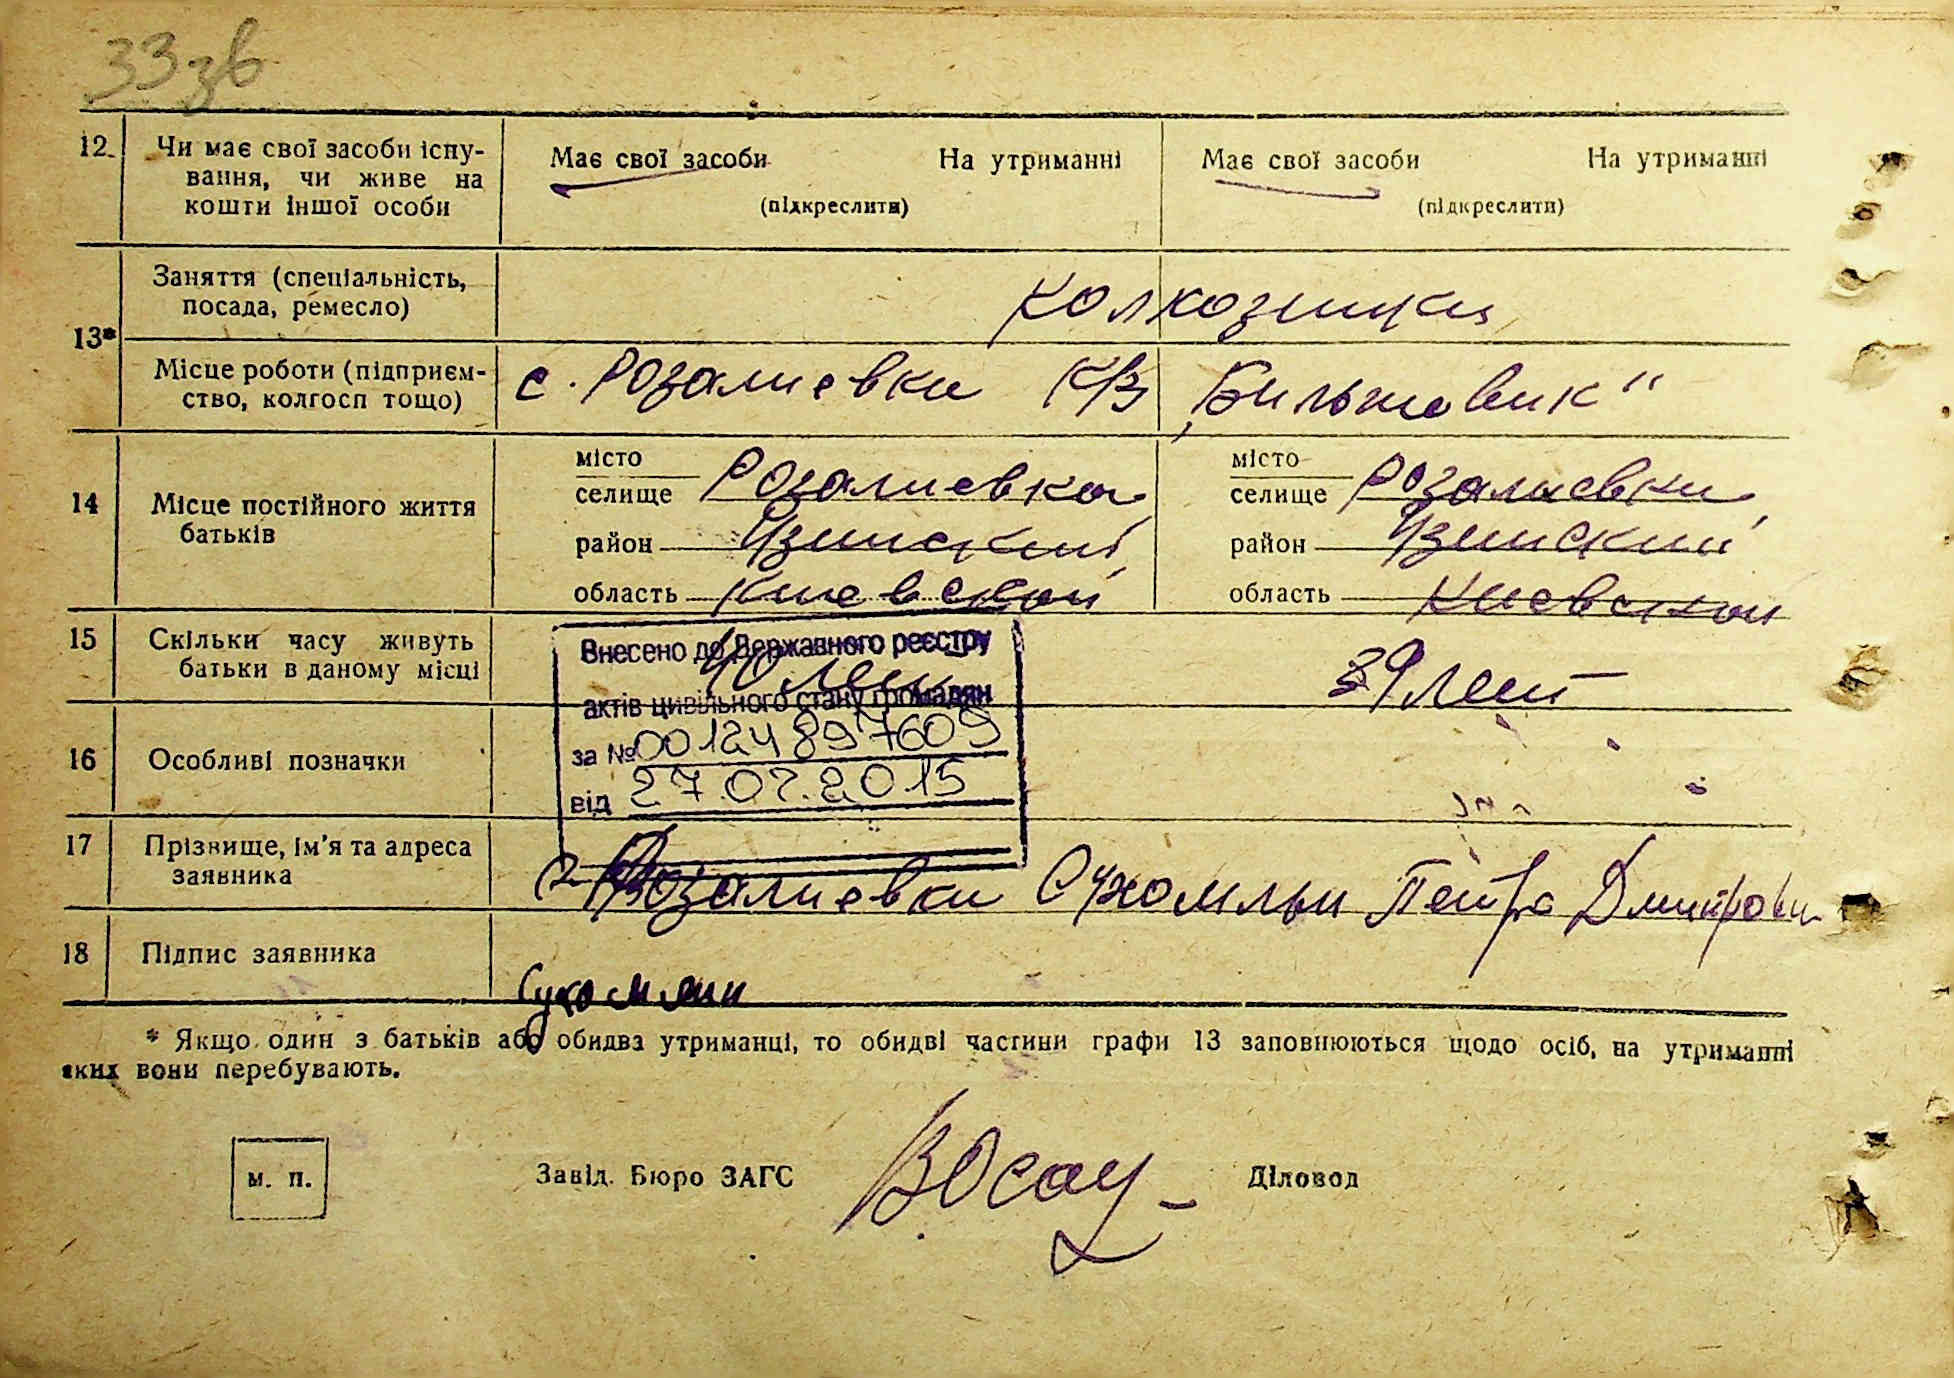 33зв
12. Чи має свої засоби існу-
вання, чи живе на
кошти іншої особи
Має свої засоби На утриманні
(підкреслити)
Має свої засоби На утриманні
(підкреслити)
13* Заняття (спеціальність,
посада, ремесло)
колхозники
Місце роботи (підприєм-
ство, колгосп тощо)
с. Розалиевка к/з "Бильшовик"
14 Місце постійного життя
батьків
місто
селище Розалиевка
район Узинский
область Киевской
місто
селище Розалиевка
район Узинский
область Киевской
15 Скільки часу живуть
батьки в даному місці
40 лет
39 лет
Внесено до Державного реєстру
актів цивільного стану громадян
за №00124897609
від 27.07.2015
16 Особливі позначки
17 Прізвище, ім'я та адреса
заявника
с. Розалиевка Сухомлын Петро Дмитрович
18 Підпис заявника
Сухомлин
* Якщо один з батьків або обидва утриманці, то обидві частини графи 13 заповнюються щодо осіб, на утриманні
яких вони перебувають.
м. п.
Завід. Бюро ЗАГС
Діловод